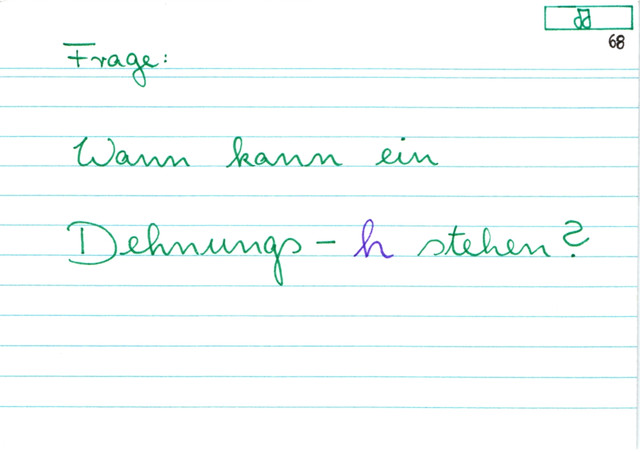 68
Frage:
Wann kann ein
Dehnungs-h stehen?